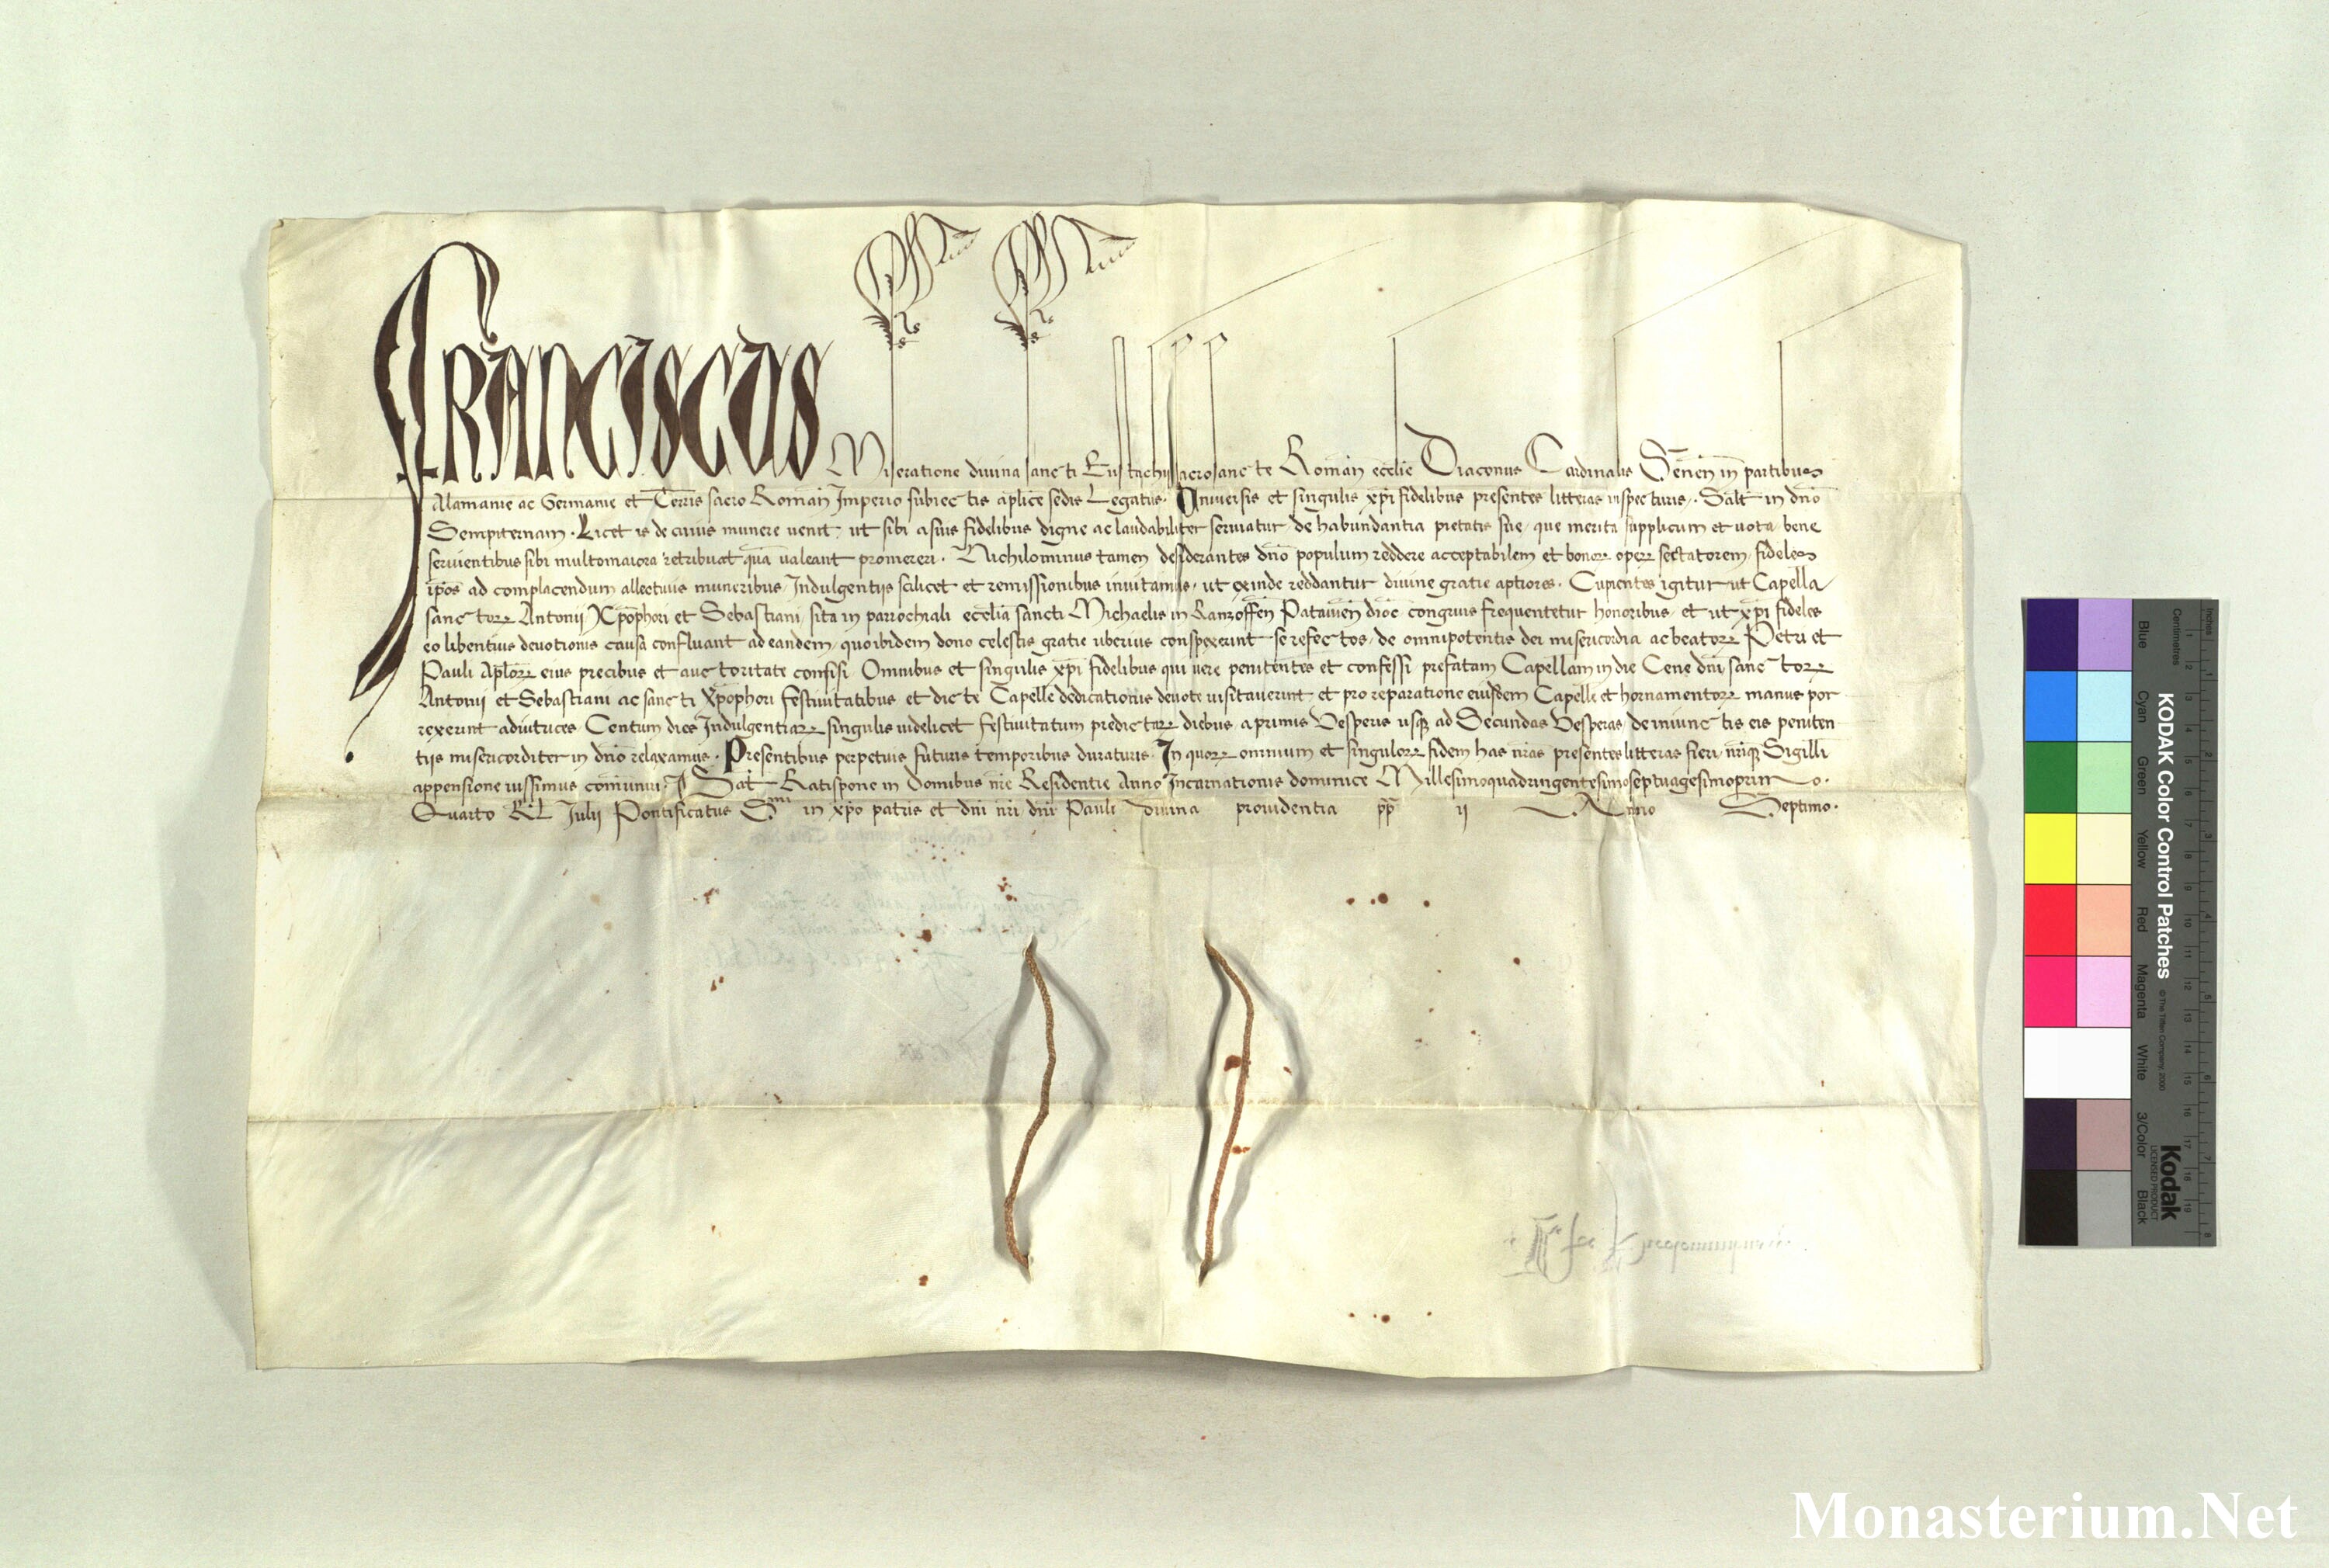 FRANCISCUS Miseratione divina sancti Eustachii sacrosancte Roman̄ eccl̄ie Diaconus Cardinalis Senen̄ in partibus
Alamanie ac Germanie et Terris sacro Roman̄ Imperio subiectis aplīce sedis Legatus. Universis et singulis xp̄i fidelibus presentes litteras inspecturis. Salt̄ in dn̄o
Sempiternam. Licet is de cuius munere venit, ut sibi a suis fidelibus digne ac laudabiliter serviatur de habundantia pietatis sue, que merita supplicum et vota bene
servientibus sibi multomaiora retribuat quā valeant promereri. Nichilominus tamen desiderantes dn̄o populum reddere acceptabilem et bonoꝝ operꝝ sectatorem, fideles
ip̄os ad complacendum allectivis muneribus, Indulgentijs scilicet et remissionibus invitamus, ut exinde reddantur divine gratie aptiores. Cupientes igitur ut Capella
sanctorꝝ Antonii Xp̄ophori et Sebastiani, sita in parrochiali eccl̄ia sancti Michaelis in Ranzoffen̄ Patavien̄ dioc̄ congruis frequentetur honoribus, et ut xp̄i fideles
eo libentius devotionis causa confluant ad eandem, quo ibidem dono celestis gratie uberius conspexerint se refectos, de omnipotentis dei misericordia ac beatorꝝ Petri et
Pauli Apl̄orꝝ eius precibus et auctoritate confisi. Omnibus et singulis xp̄i fidelibus qui vere penitentes et confessi prefatam Capellam in die Cene dn̄i sanctorꝝ
Antonii et Sebastiani ac sancti Xp̄ophori festivitatibus et dicte Capelle dedicationis devote visitaverint et pro reparatione eiusdem Capelle et hornamentorꝝ manus por
rexerint adiutrices. Centum dies Indulgentiarꝝ singulis videlicet festivitatum predictarꝝ diebus a primis Vesperis usqꝫ ad Secundas Vesperas, de iniunctis eis peniten
tijs misericorditer in dn̄o relaxamus. Presentibus perpetuis futuris temporibus duraturis. In quorꝝ omnium et singulorꝝ fidem has nr̄as presentes litteras fieri nr̄iqꝫ Sigilli
appensione iussimus com̄uniri. Dat̄ Ratispone in Domibus nr̄e Residentie Anno Incarnationis dominice Millesimoquadringentesimoseptuagesimoprimo.
Quarto Kl̄ Julij Pontificatus S.mi in xp̄o patris et dn̄i nr̄i dn̄i Pauli divina providentia pp̄ ij Anno Septimo.
KODAK Color Control Patches
© The Tiffen Company, 2000
Kodak
LICENSED PRODUCT
Blue Cyan Green Yellow Red Magenta White 3/Color Black
Centimetres
Inches
1 2 3 4 5 6 7 8 9 10 11 12 13 14 15 16 17 18 19
1 2 3 4 5 6 7 8
Monasterium.Net